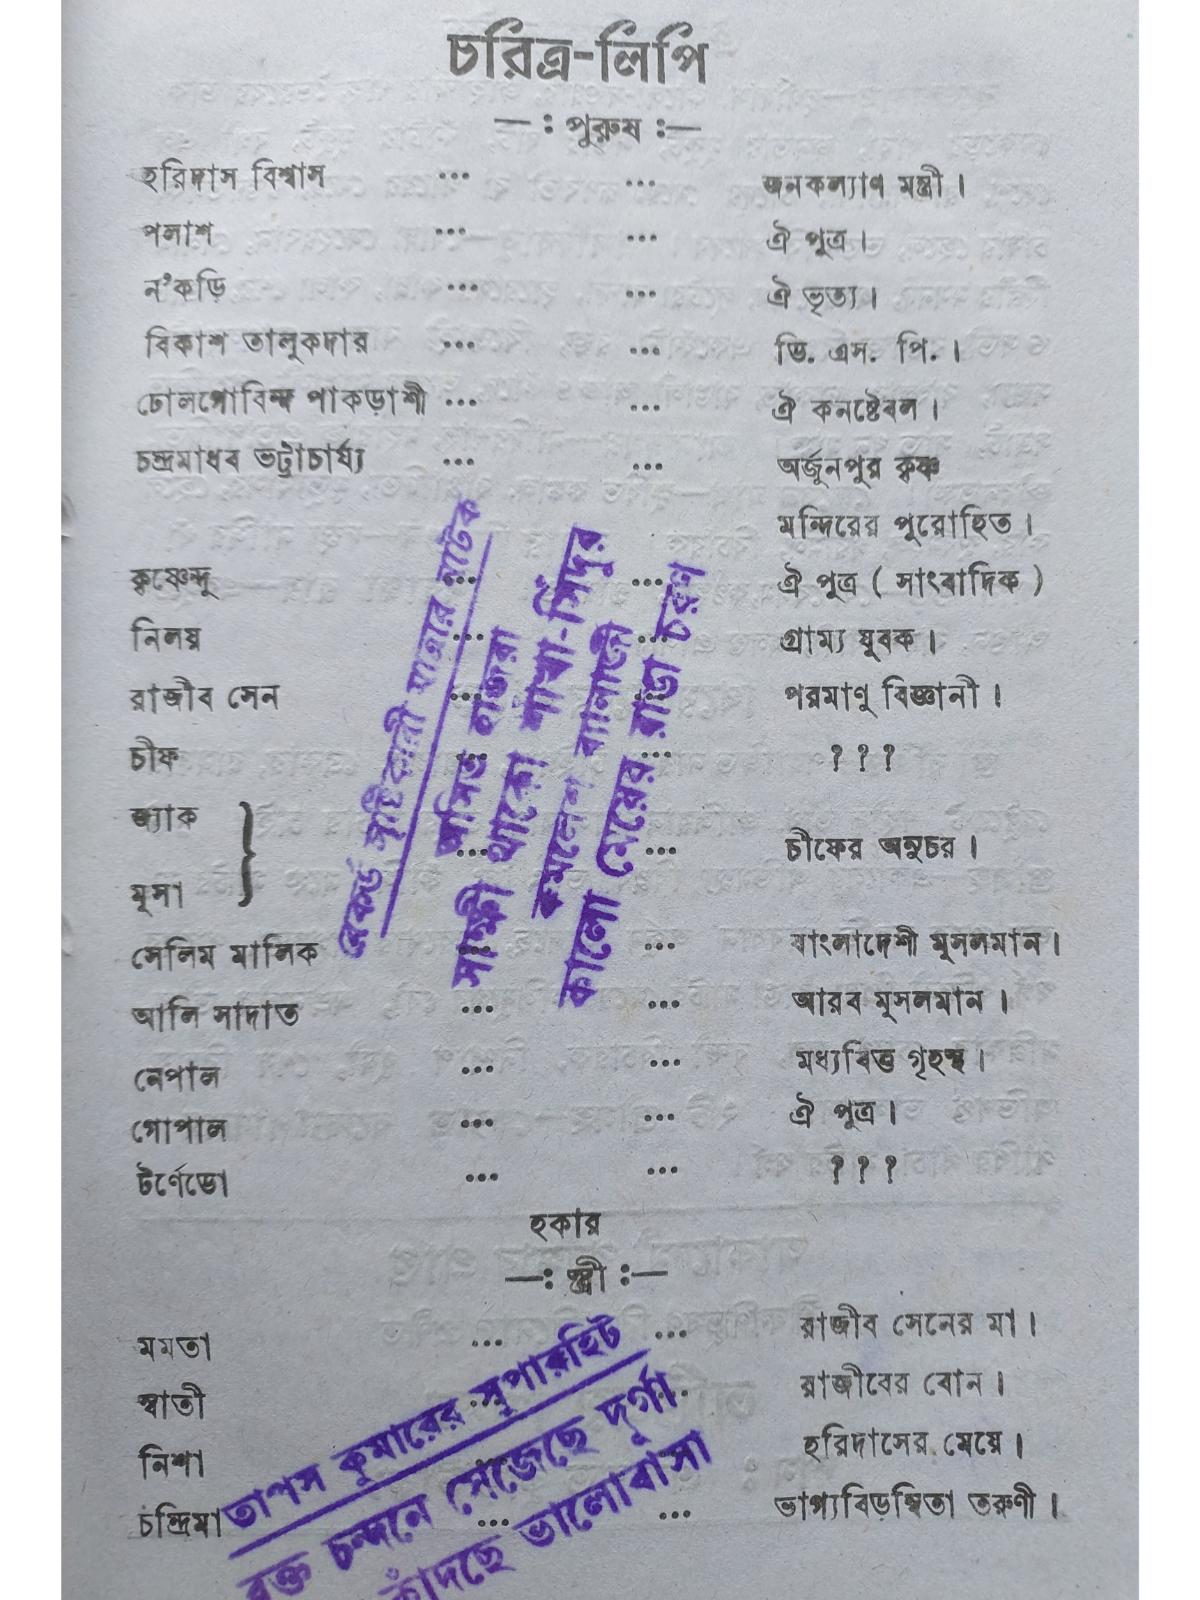 চরিত্র-লিপি
—: পুরুষ :—
হরিদাস বিশ্বাস ... ... জনকল্যাণ মন্ত্রী।
পলাশ ... ... ঐ পুত্র।
ন'কড়ি ... ... ঐ ভৃত্য।
বিকাশ তালুকদার ... ... ডি. এস. পি.।
ঢোলগোবিন্দ পাকড়াশী ... ... ঐ কনষ্টেবল।
চন্দ্রমাধব ভট্টাচার্য্য ... ... অর্জুনপুর কৃষ্ণ
মন্দিরের পুরোহিত।
কৃষ্ণেন্দু ... ... ঐ পুত্র ( সাংবাদিক )
নিলয় ... ... গ্রাম্য যুবক।
রাজীব সেন ... ... পরমাণু বিজ্ঞানী।
চীফ ... ... ? ? ?
জ্যাক
মুসা } ... ... চীফের অনুচর।
সেলিম মালিক ... ... বাংলাদেশী মুসলমান।
আলি সাদাত ... ... আরব মুসলমান।
নেপাল ... ... মধ্যবিত্ত গৃহস্থ।
গোপাল ... ... ঐ পুত্র।
টর্ণেডো ... ... ? ? ?
হকার
—: স্ত্রী :—
মমতা ... ... রাজীব সেনের মা।
স্বাতী ... ... রাজীবের বোন।
নিশা ... ... হরিদাসের মেয়ে।
চন্দ্রিমা ... ... ভাগ্যবিড়ম্বিতা তরুণী।
রেকর্ড সৃষ্টিকারী যাত্রার নাটক
অসিত হাজরা
সাক্ষী থাকো শাঁখা-সিঁদুর
কমলেশ ব্যানার্জী
কালো মেয়ের রাঙা চরণ
তাপস কুমারের সুপারহিট
রক্ত চন্দনে সেজেছে দুর্গা
কাঁদছে ভালোবাসা